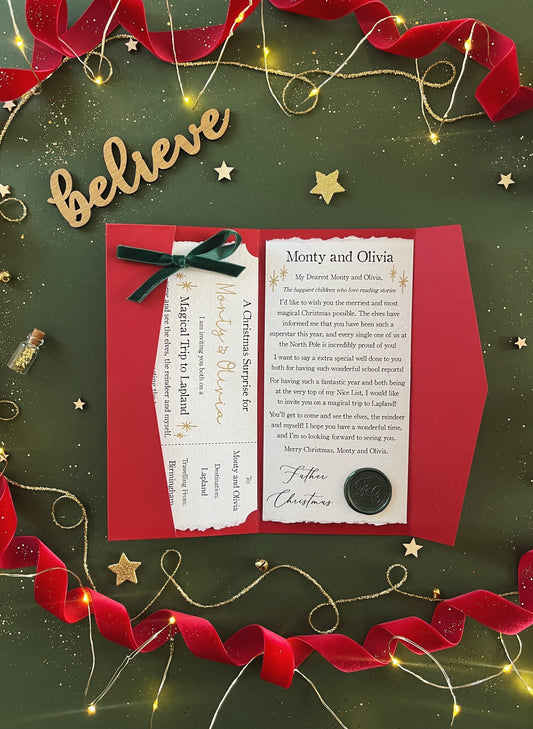 believe
A Christmas Surprise for
Monty & Olivia
I am inviting you both on a
Magical Trip to Lapland
and see the elves, the reindeer and myself.
To:
Monty and Olivia
Destination:
Lapland
Travelling From:
Birmingham
Monty and Olivia
My Dearest Monty and Olivia,
The happiest children who love reading stories
I'd like to wish you the merriest and most
magical Christmas possible. The elves have
informed me that you have been such a
superstar this year, and every single one of us at
the North Pole is incredibly proud of you!
I want to say a extra special well done to you
both for having such wonderful school reports!
For having such a fantastic year and both being
at the very top of my Nice List, I would like
to invite you on a magical trip to Lapland!
You'll get to come and see the elves, the reindeer
and myself! I hope you have a wonderful time,
and I'm so looking forward to seeing you.
Merry Christmas, Monty and Olivia.
Father
Christmas